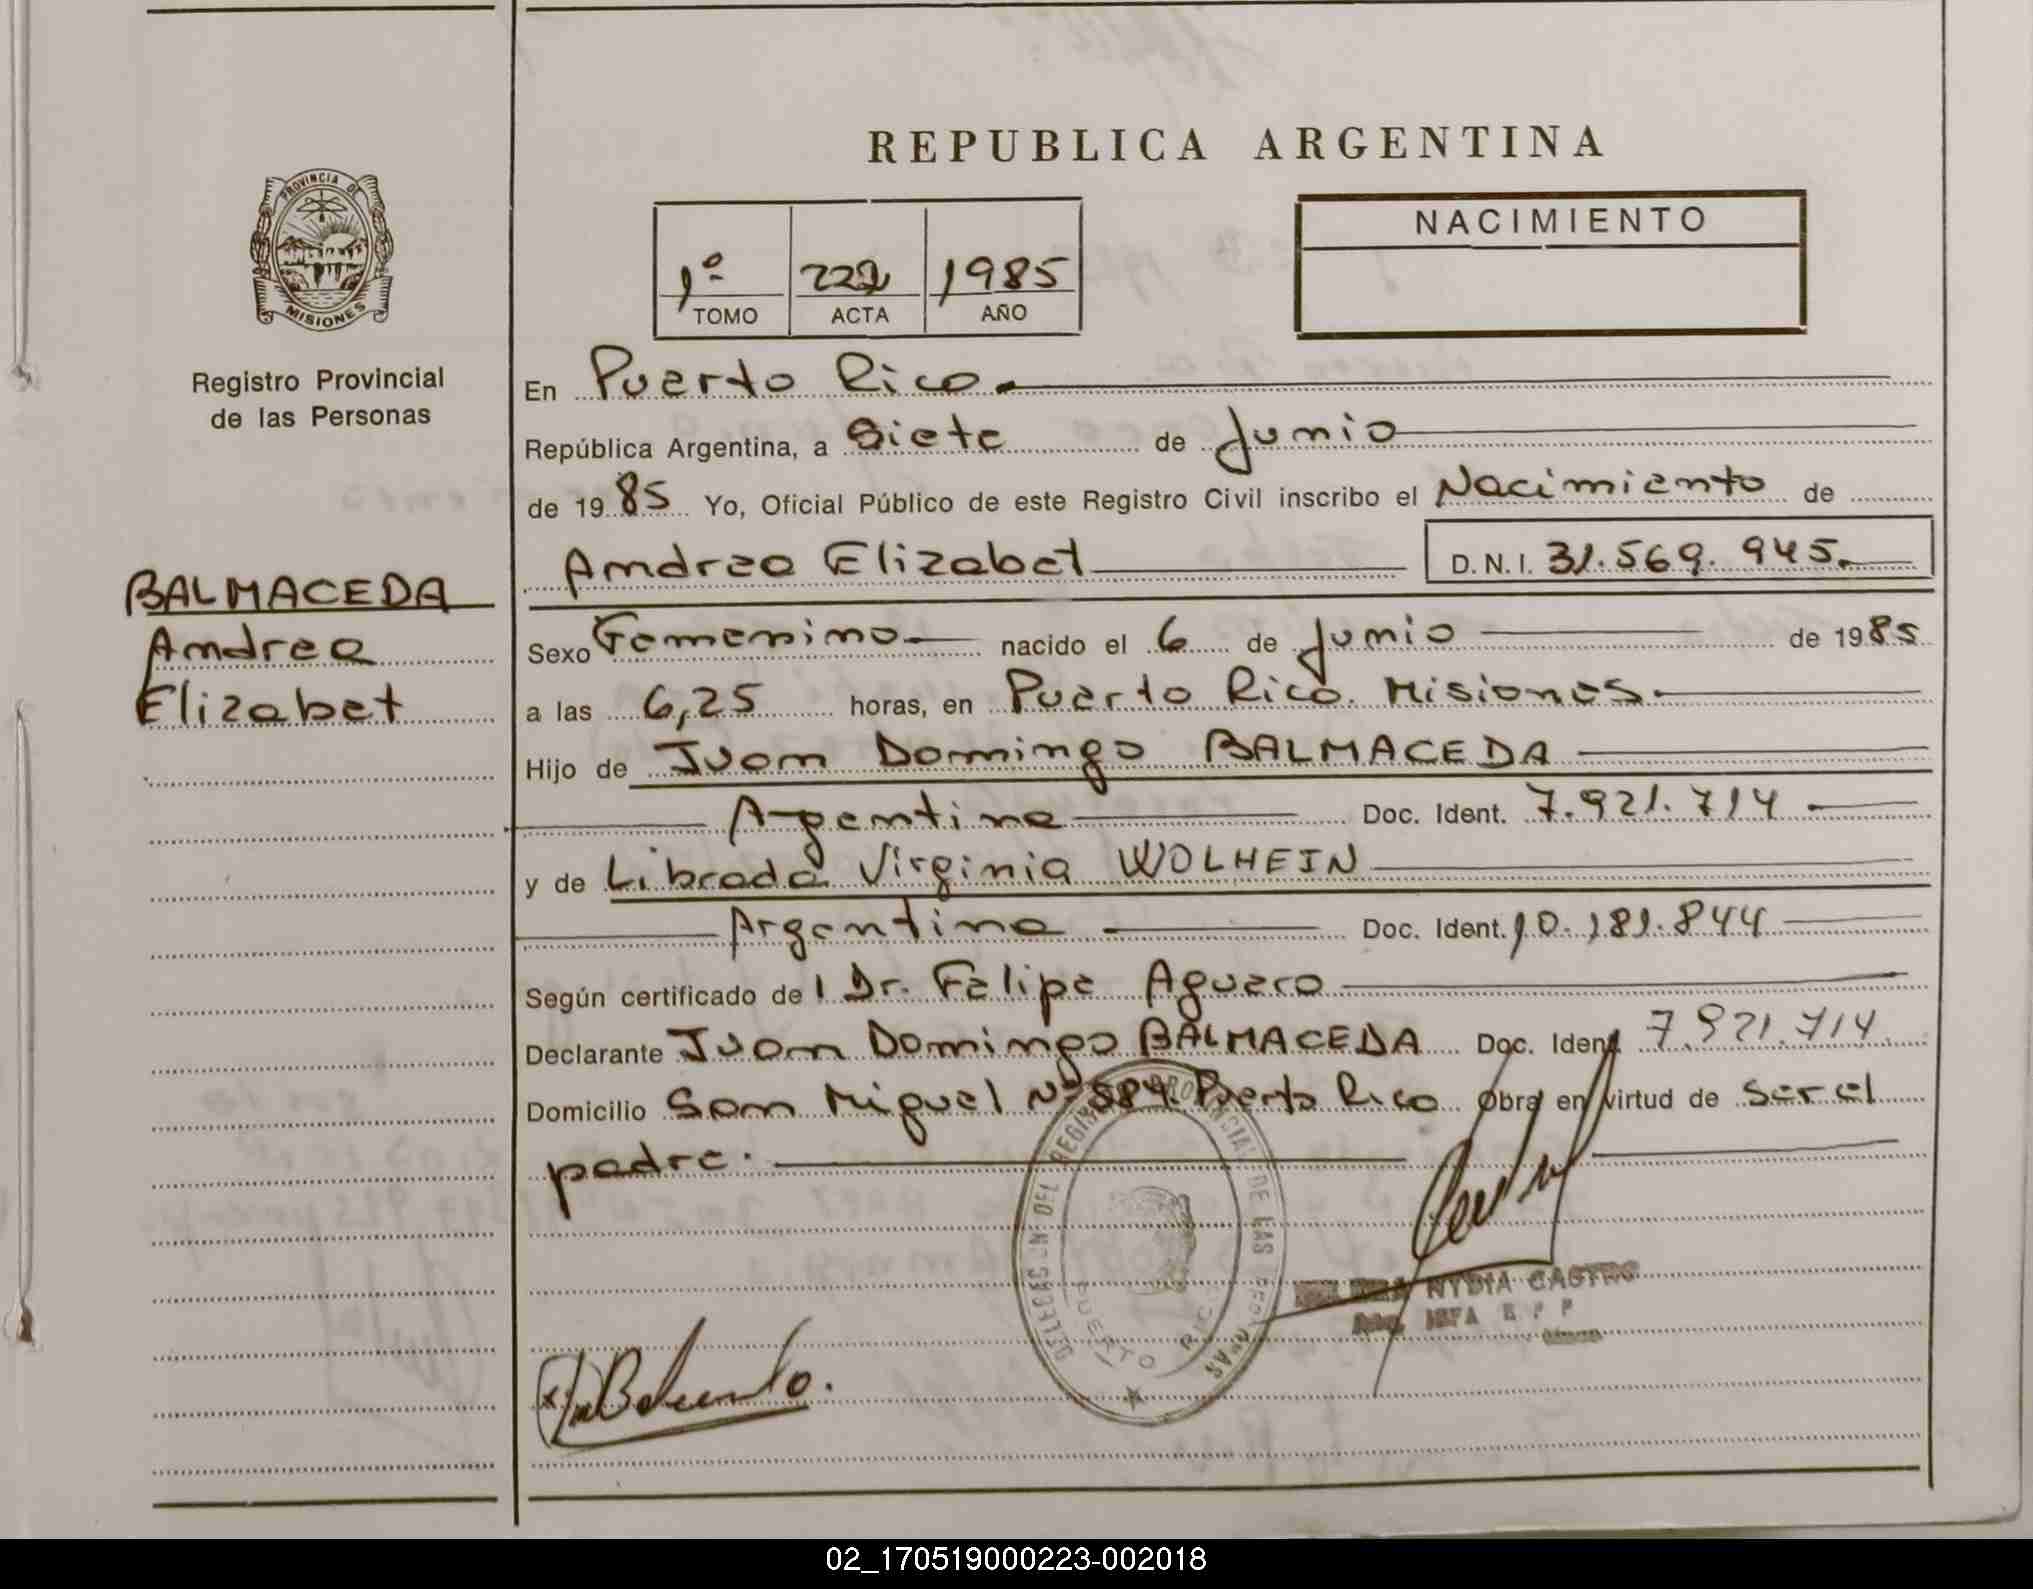 REPUBLICA ARGENTINA
PROVINCIA DE MISIONES
Registro Provincial
de las Personas
1º 222 1985
TOMO ACTA AÑO
NACIMIENTO
En Puerto Rico.
República Argentina, a Siete de Junio
de 1985 Yo, Oficial Público de este Registro Civil inscribo el Nacimiento de
Andrea Elizabet D.N.I. 31.569.945.
BALMACEDA
Andrea
Elizabet
Sexo Femenino nacido el 6 de Junio de 1985
a las 6,25 horas, en Puerto Rico. Misiones.
Hijo de Juan Domingo BALMACEDA
Argentina Doc. Ident. 7.921.714
y de Librada Virginia WOLHEIN
Argentina Doc. Ident. 10.181.844
Según certificado del Dr. Felipe Aguero
Declarante Juan Domingo BALMACEDA Doc. Ident. 7.921.714
Domicilio San Miguel Nº 884. Puerto Rico Obra en virtud de ser el
padre.
DELEGACION DEL REGISTRO PROVINCIAL DE LAS PERSONAS
PUERTO RICO
NYDIA CASTRO
02_170519000223-002018